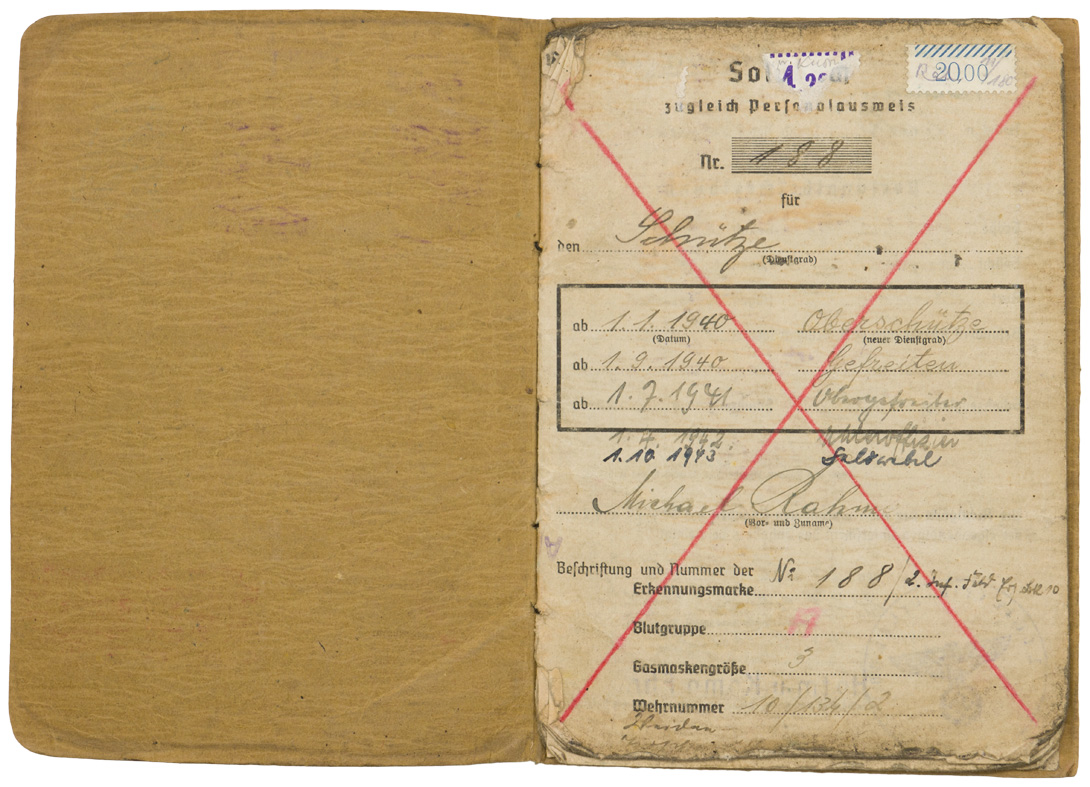 20.00
zugleich Personalausweis
Nr. 188
für
den Schütze
(Dienstgrad)
ab 1.1.1940 Oberschütze
(Datum) (neuer Dienstgrad)
ab 1.9.1940 Gefreiten
ab 1.7.1941 Obergefreiter
1.4.1942. Unteroffizier
1.10.1943 Feldwebel
Michael Rahm
(Vor- und Zuname)
A
Beschriftung und Nummer der
Erkennungsmarke No 188/2. Inf. Feld
Blutgruppe A
Gasmaskengröße 3
Wehrnummer 10/134/2
Weiden